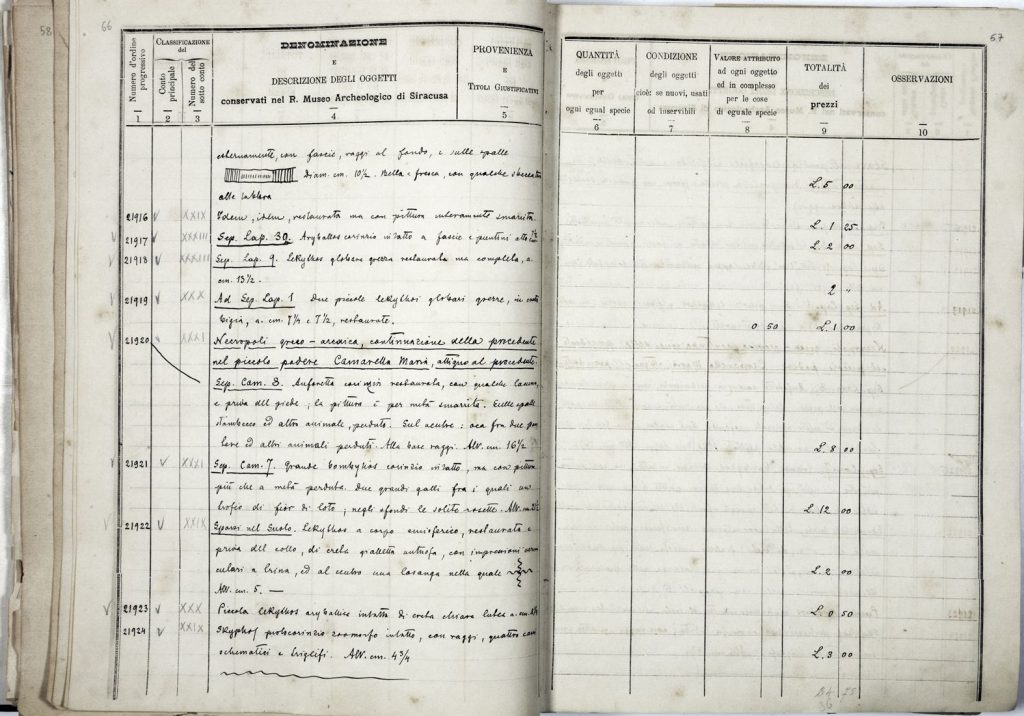 58
66
57
Numero d'ordine progressivo
CLASSIFICAZIONE del
Conto principale
Numero del sotto conto
DENOMINAZIONE
E
DESCRIZIONE DEGLI OGGETTI
conservati nel R. Museo Archeologico di Siracusa
PROVENIENZA
E
TITOLI GIUSTIFICATIVI
QUANTITÀ
degli oggetti
per
ogni egual specie
CONDIZIONE
degli oggetti
cioè: se nuovi, usati
od inservibili
VALORE ATTRIBUITO
ad ogni oggetto
ed in complesso
per le cose
di eguale specie
TOTALITÀ
dei
prezzi
OSSERVAZIONI
1 2 3 4 5 6 7 8 9 10
esternamente, con fascie, raggi al fondo, e sulle spalle
Diam. cm. 10½. Bella e fresca, con qualche
alle labbra L. 5 00
21916 v XXIX Idem, idem, restaurata ma con pittura interamente smarrita. L. 1 25
21917 v XXXIII Sep. Lap. 30. Aryballos corinzio intatto a fascie e puntini L. 2 00
21918 v XXXIII Sep. Lap. 9. Lekythos globare grezza restaurata ma completa, a.
cm. 13½. 2 "
21919 v XXX Ad Sep. Lap. 1 Due piccole lekythoi globari grezze, in creta
bigia, a. cm. 7¼ e 7½, restaurate. 0 50 L. 1 00
21920 v XXXI Necropoli greco-arcaica, continuazione della precedente
nel piccolo podere Camarella Maria, attiguo al precedente.
Sep. Cam. 3. Anforetta corinzia restaurata, con qualche lacuna,
e priva del piede; la pittura è per metà smarrita. Sulle spalle
stambecco ed altro animale, perduto. Sul ventre: oca fra due
ed altri animali perduti. Alla base raggi. Alt. cm. 16½ L. 8 00
21921 v XXXI Sep. Cam. 7. Grande bombylios corinzio intatto, ma con pittura
più che a metà perduta. Due grandi galli fra i quali un
trofeo di fior di loto; negli sfondi le solite rosette. Alt. cm. L. 12 00
21922 v XXIX Sporazi nel Suolo. Lekythos a corpo emisferico, restaurata e
priva del collo, di creta gialletta, con impressioni
a trina, ed al centro una losanga nella quale L. 2 00
Alt. cm. 5. —
21923 v XXX Piccola lekythos aryballica intatta di creta chiara lutea a. cm. L. 0 50
21924 v XXIX Skyphos protocorinzio zoomorfo intatto, con raggi, quattro cani
schematici e triglifi. Alt. cm. 4¾ L. 3 00
34 75
36